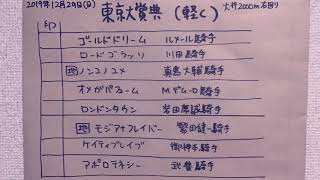 2019年12月29日(日) 東京大賞典 (軽く) 大井2000m右回り
印
ゴールドドリーム ルメール騎手
ロードゴラッソ 川田騎手
地 ノンコノユメ 真島大輔騎手
オメガパフューム M.デムーロ騎手
ロンドンタウン 岩田康誠騎手
地 モジアナフレイバー 繁田健一騎手
ケイティブレイブ 御神本騎手
アポロテキシー 武豊騎手